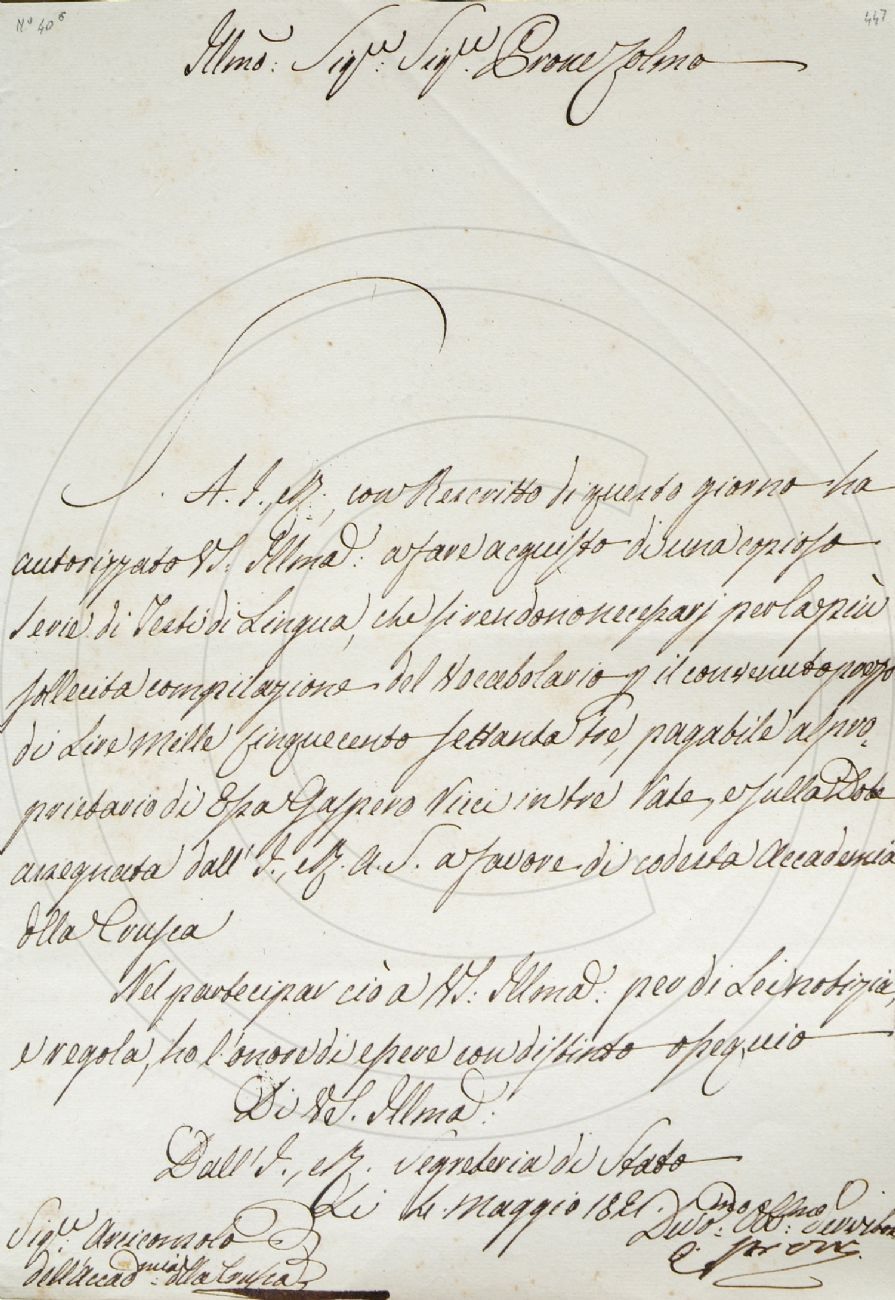 N.° 40 6
447
Illmo: Sig.re Sig.re Prone Colmo
S. A. I., e R., con Rescritto di questo giorno ha
autorizzato VS. Illma: a fare acquisto di una copiosa
serie di Testi di Lingua, che si rendono necessarj per la più
sollecita compilazione del Vocabolario p il convenuto prezzo
di Lire Mille Cinquecento settanta tre, pagabile a pro=
prietario di Essa Gaspero Ricci in tre Rate, e sulla Dote
assegnata dall' I., e R. A. S. a favore di codesta Accademia
della Crusca
Nel partecipar ciò a VS: Illma: per di Lei notizia,
e regola, ho l'onore di essere con distinto ossequio
Di VS. Illma:
Dall' I., e R. Segreteria di Stato
Li 4. Maggio 1821.
Sig.re Arciconsolo
dell'Accad.mia della Crusca
Devo.mo Obb.mo Servitore